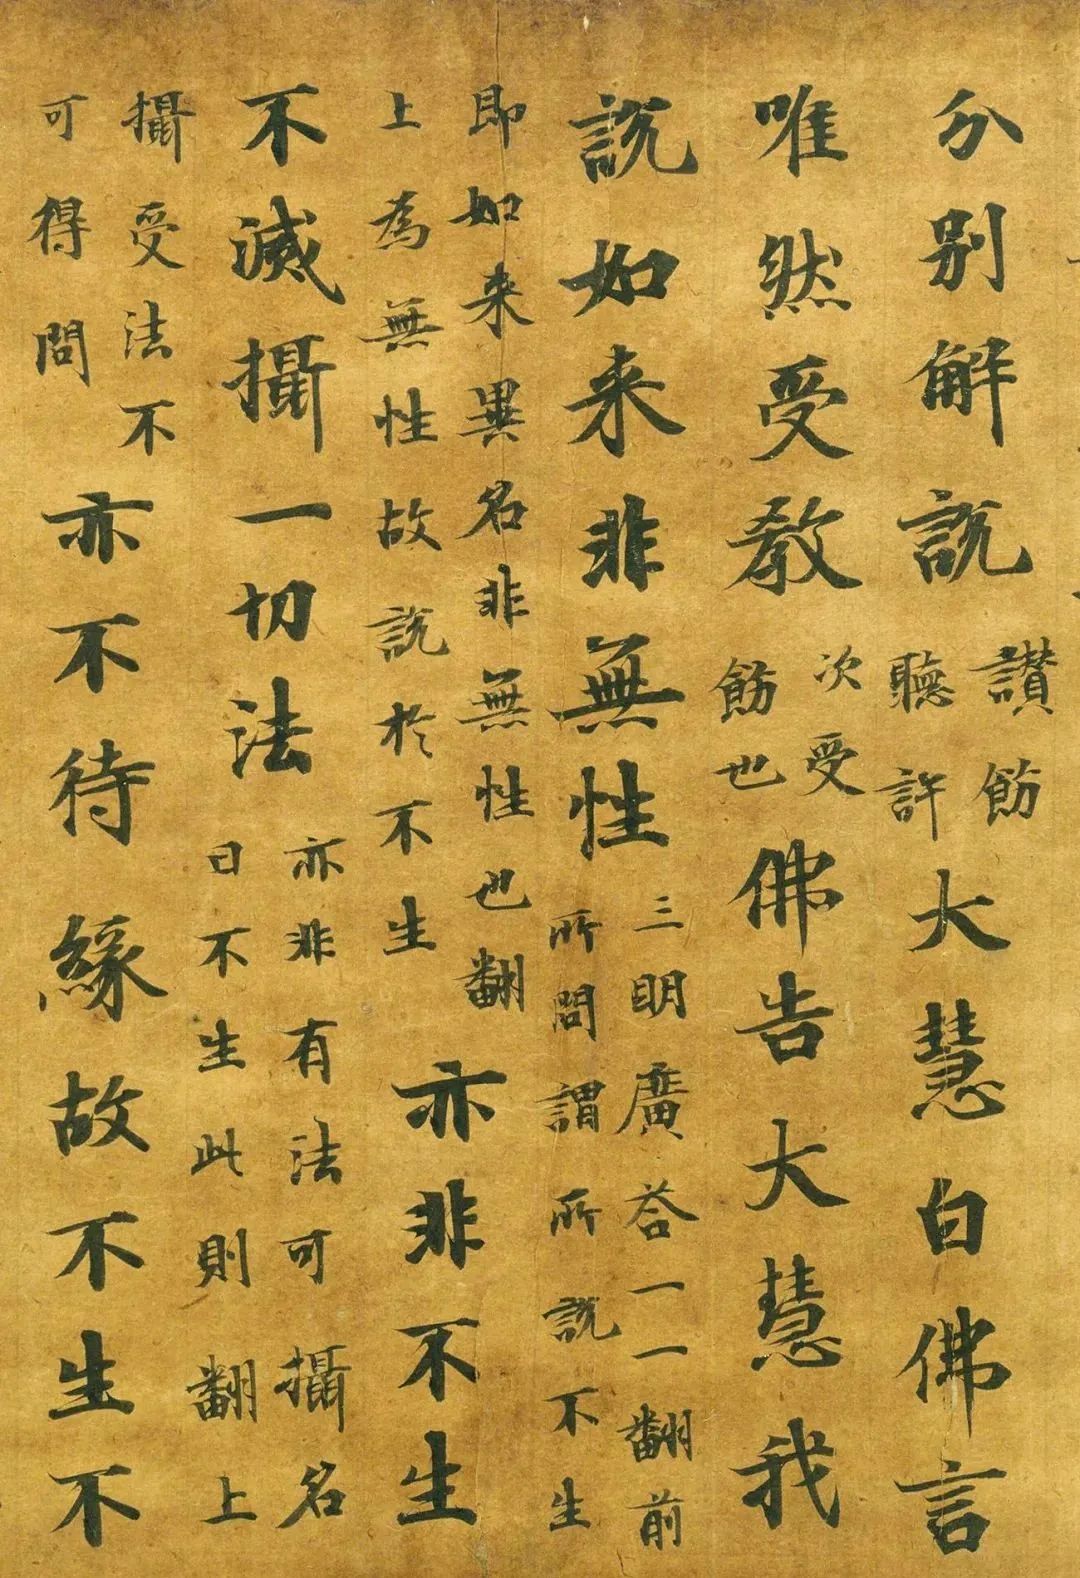 分别解説讃飭聽許大慧白佛言
唯然受教次受飭也佛告大慧我
説如来非無性三明廣荅一一翻前所問謂所説不生
即如来異名非無性也翻上為無性故説於不生亦非不生
不滅攝一切法亦非有法可攝名曰不生此則翻上
攝受法不可得問亦不待緣故不生不